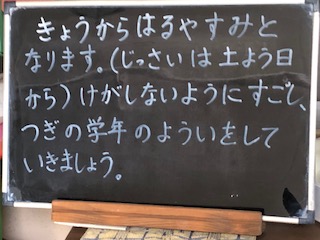 きょうからはるやすみと
なります。(じっさいは土よう日
から)けがしないようにすごし、
つぎの学年のよういをして
いきましょう。